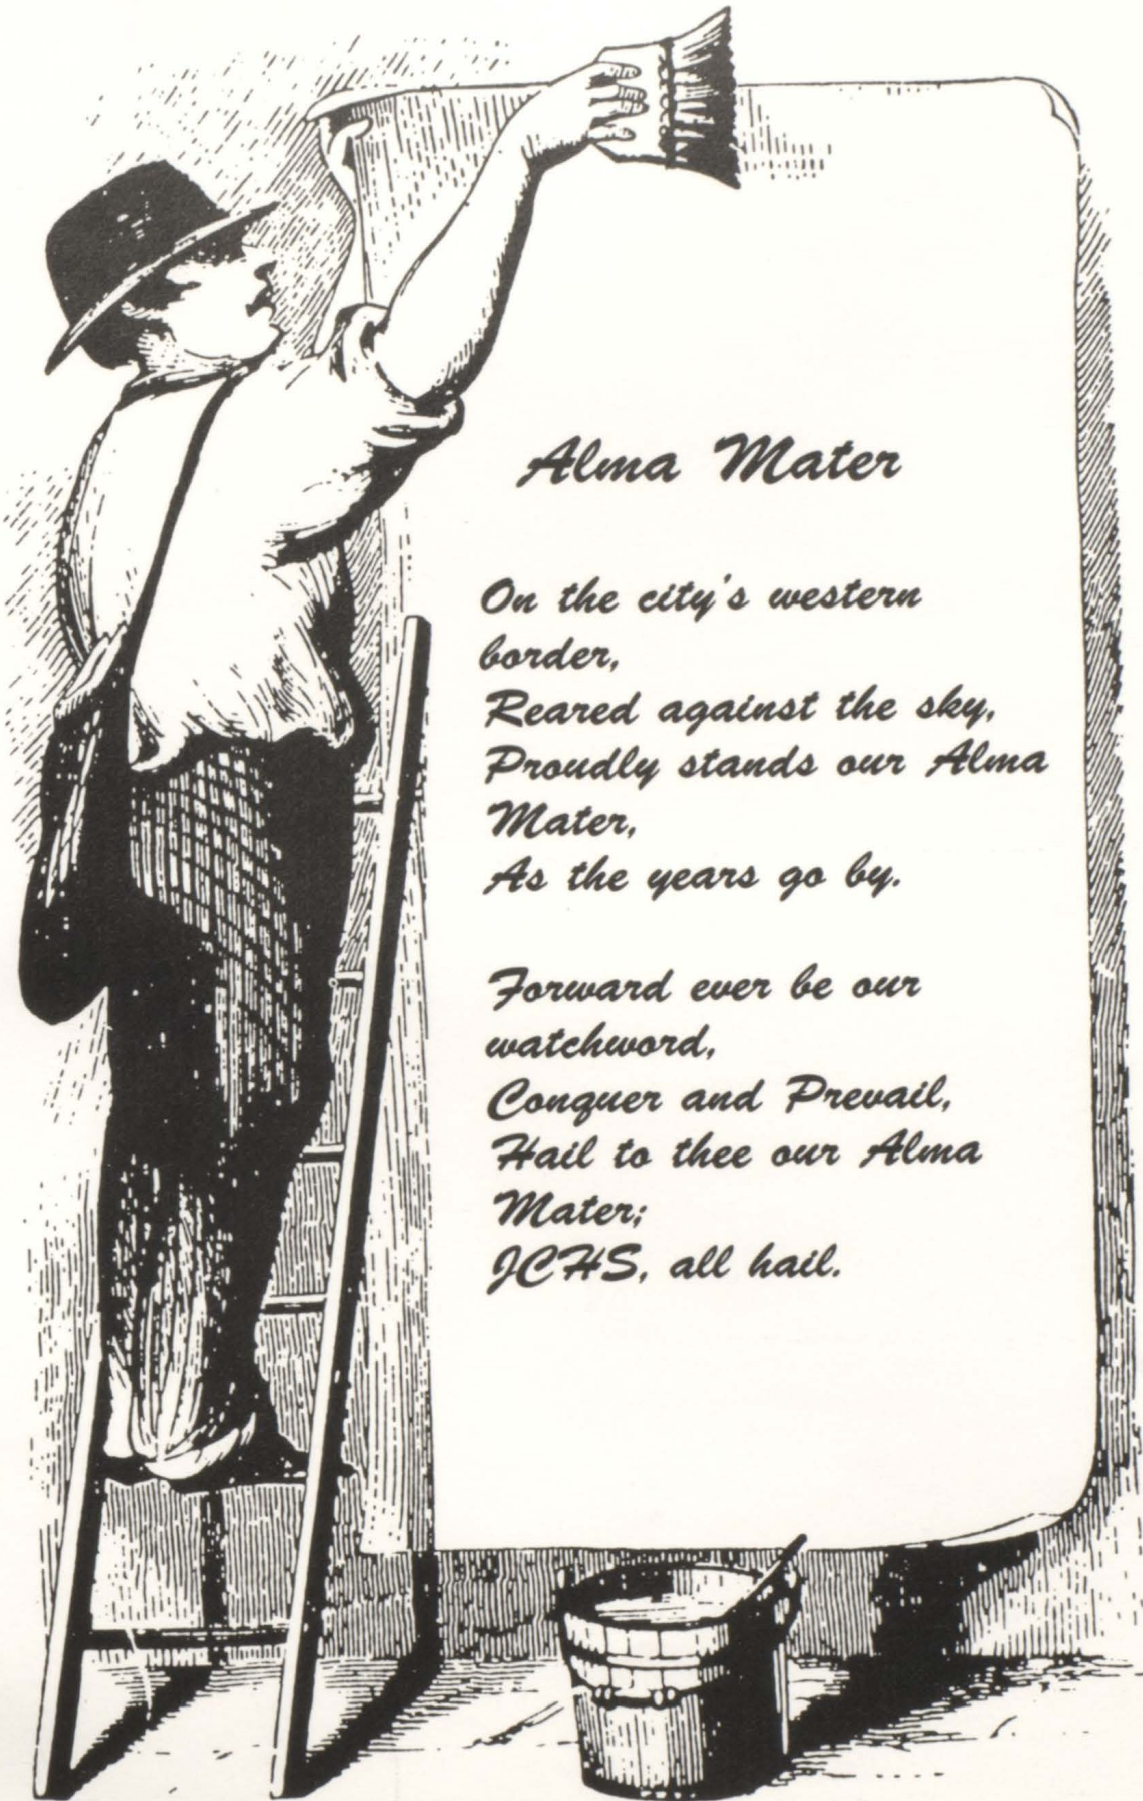 Alma Mater
On the city's western
border,
Reared against the sky,
Proudly stands our Alma
Mater,
As the years go by.
Forward ever be our
watchword,
Conquer and Prevail,
Hail to thee our Alma
Mater;
JCHS, all hail.